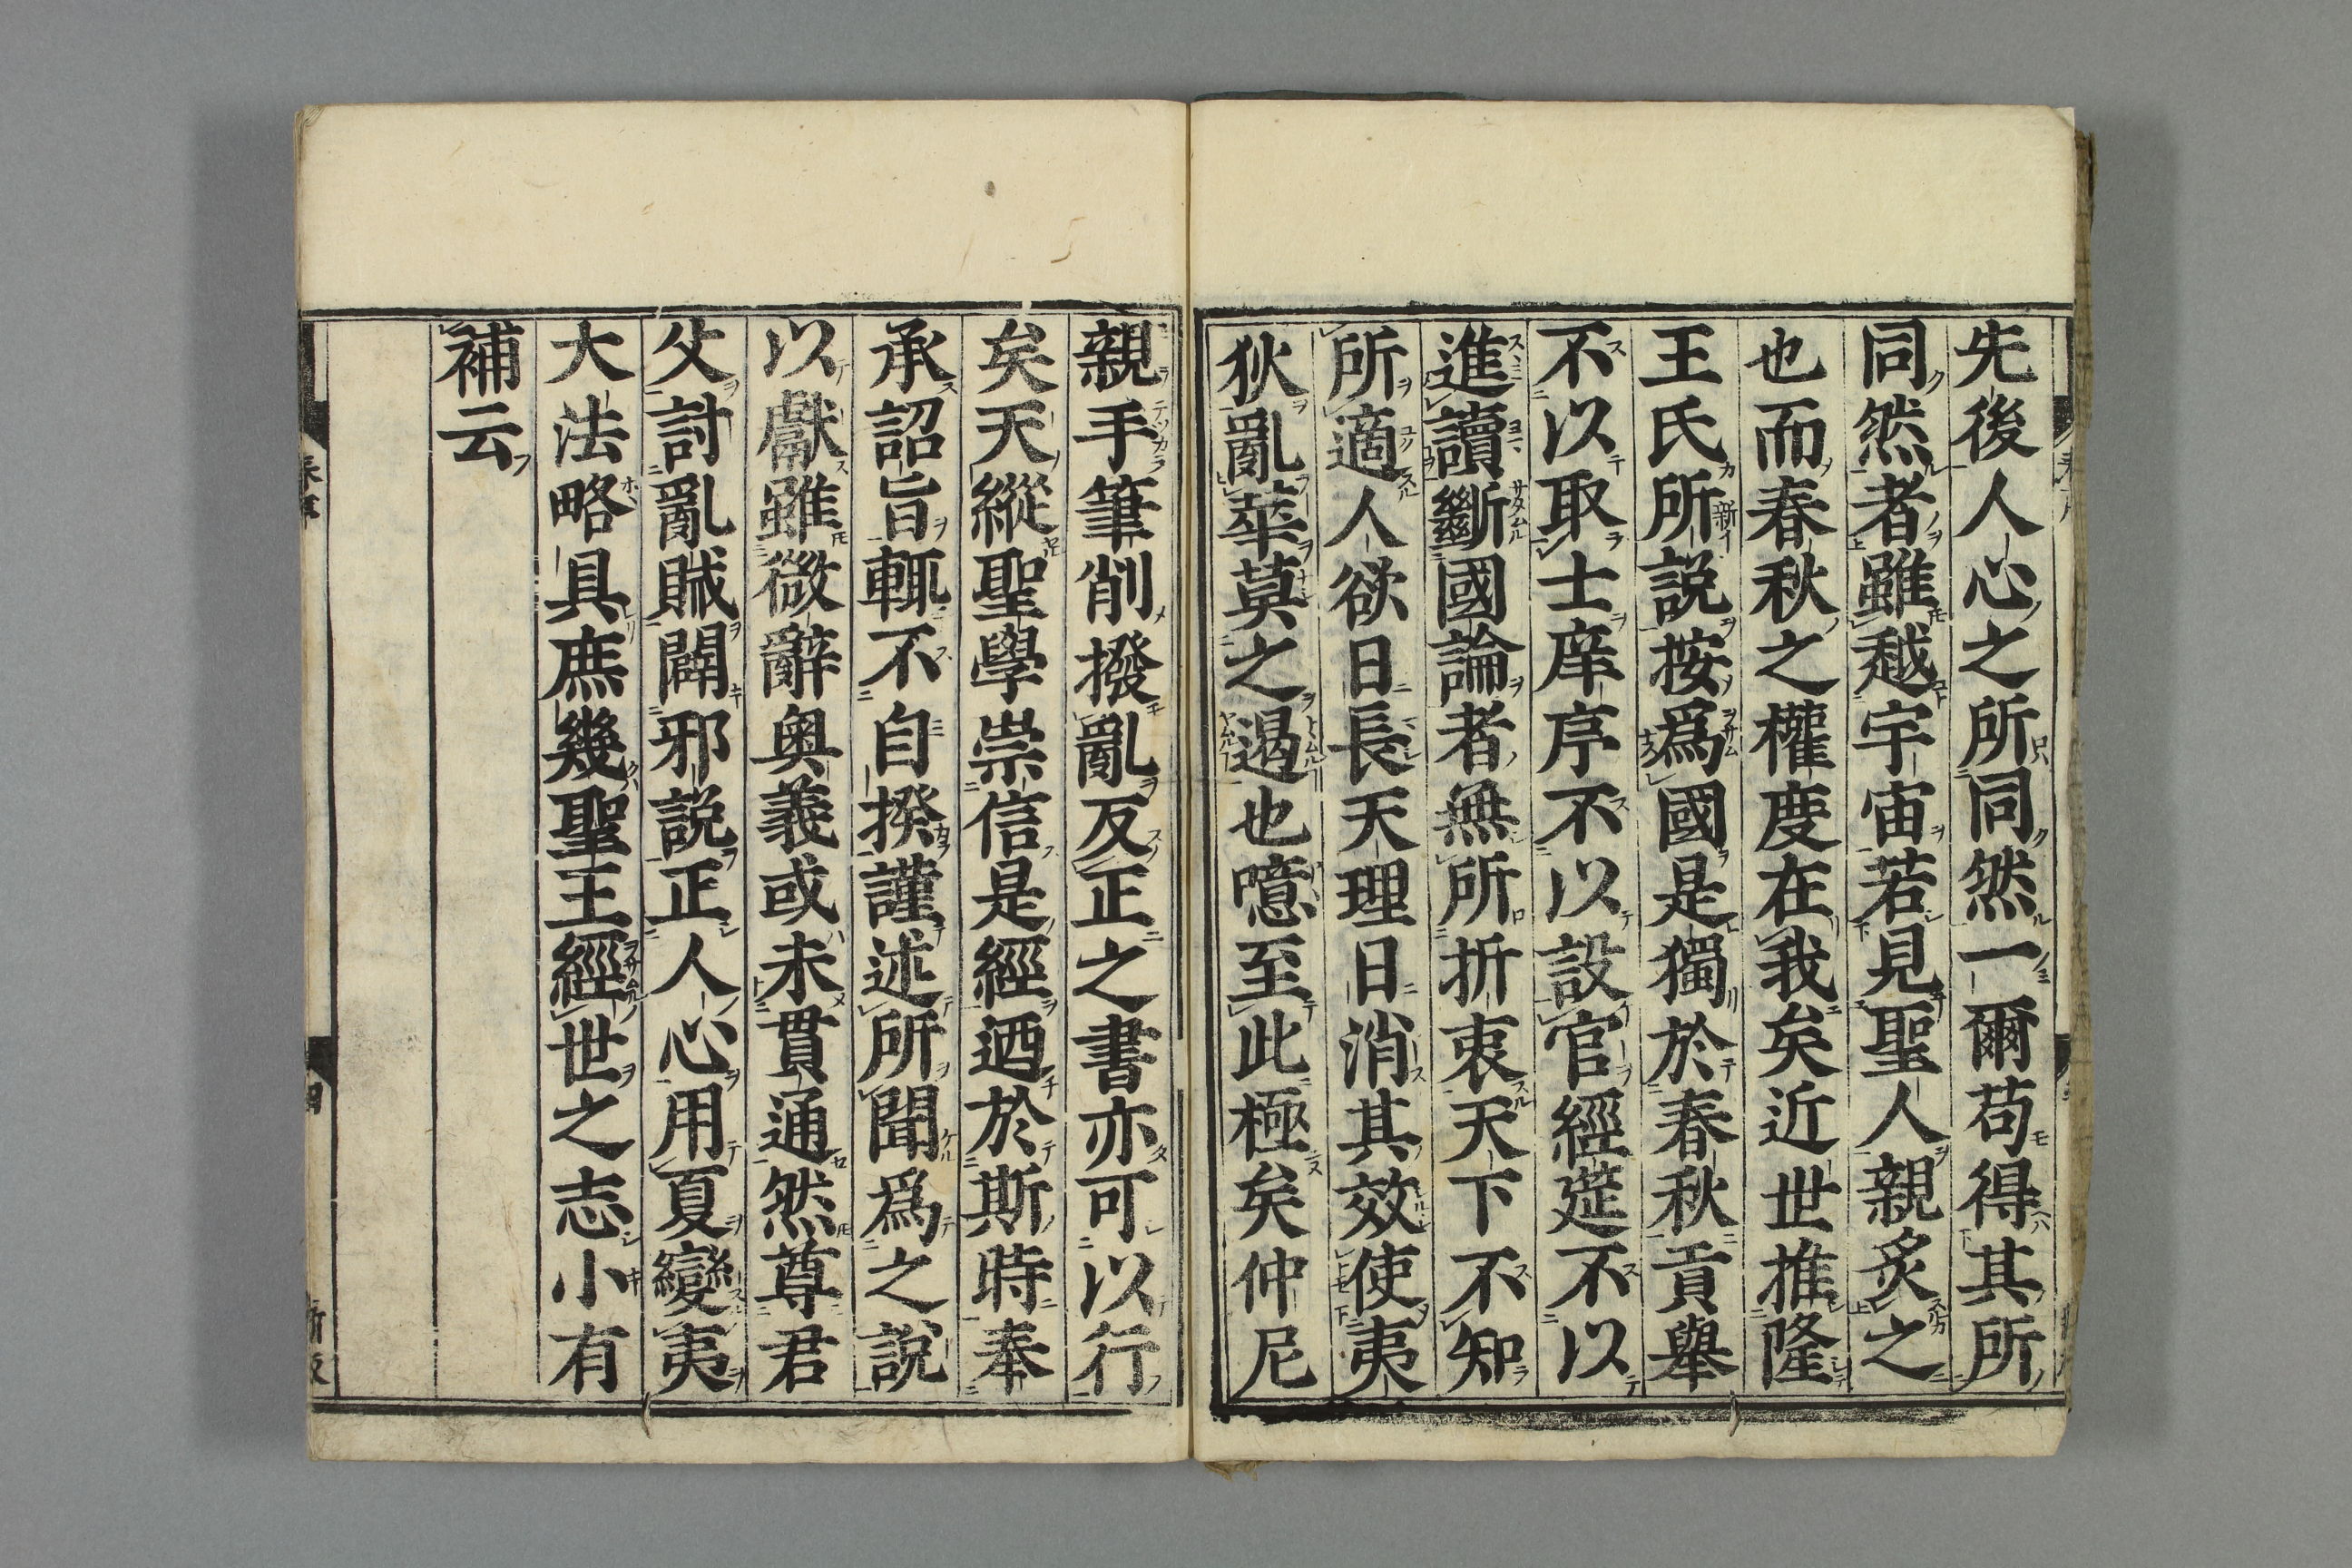 先後人心之所同然一爾苟得其所
同然者雖越宇宙若見聖人親炙之
也而春秋之權度在我矣近世推隆
王氏所説按爲國是獨於春秋貢舉
不以取士庠序不以設官經筵不以
進讀斷國論者無所折衷天下不知
所適人欲日長天理日消其效使夷
狄亂華莫之遏也噫至此極矣仲尼
親手筆削撥亂反正之書亦可以行
矣天縱聖學崇信是經迺於斯時奉
承詔旨輒不自揆謹述所聞爲之說
以獻雖微辭奥義或未貫通然尊君
父討亂賊闢邪説正人心用夏變夷
大法略具庶幾聖王經世之志小有
補云